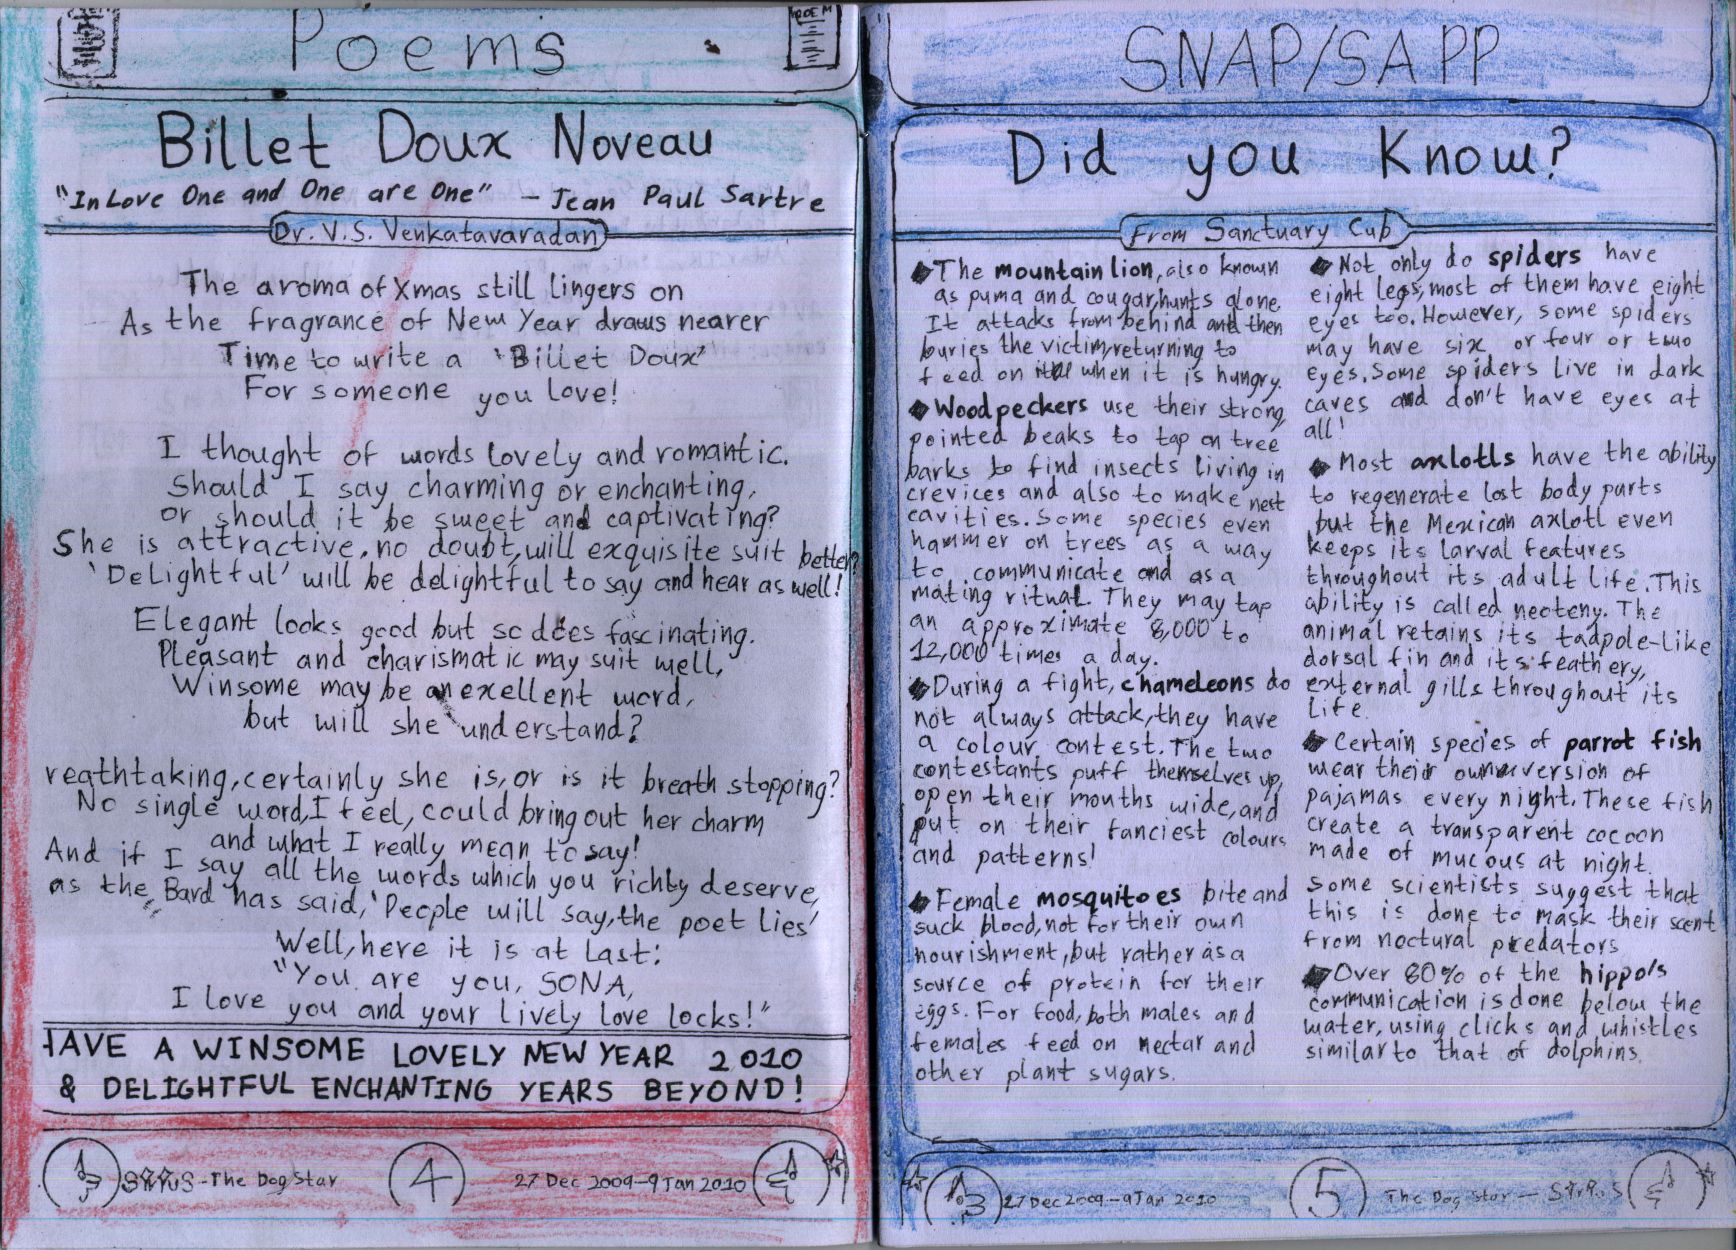 POEM
Poems
Billet Doux Noveau
"In Love One and One are One" - Jean Paul Sartre
Dr. V.S. Venkatavaradan
The aroma of Xmas still lingers on
As the fragrance of New Year draws nearer
Time to write a 'Billet Doux'
For someone you love!
I thought of words lovely and romantic.
Should I say charming or enchanting,
or should it be sweet and captivating?
She is attractive, no doubt, will exquisite suit better?
'Delightful' will be delightful to say and hear as well!
Elegant looks good but so does fascinating.
Pleasant and charismatic may suit well,
Winsome may be an exellent word,
but will she understand?
reathtaking, certainly she is, or is it breath stopping?
No single word, I feel, could bring out her charm
and what I really mean to say!
And if I say all the words which you richly deserve,
as the Bard has said, 'People will say, the poet lies'
Well, here it is at last:
"You are you, SONA,
I love you and your lively love locks!"
HAVE A WINSOME LOVELY NEW YEAR 2010
& DELIGHTFUL ENCHANTING YEARS BEYOND!
Sirius - The Dog Star
4
27 Dec 2009-9 Jan 2010
SNAP/SAPP
Did you Know?
From Sanctuary Cub
The mountain lion, also known
as puma and cougar, hunts alone.
It attacks from behind and then
buries the victim, returning to
feed on it when it is hungry.
Woodpeckers use their strong,
pointed beaks to tap on tree
barks to find insects living in
crevices and also to make nest
cavities. Some species even
hammer on trees as a way
to communicate and as a
mating ritual. They may tap
an approximate 8,000 to
12,000 times a day.
During a fight, chameleons do
not always attack, they have
a colour contest. The two
contestants puff themselves up,
open their mouths wide, and
put on their fanciest colours
and patterns!
Female mosquitoes bite and
suck blood, not for their own
nourishment, but rather as a
source of protein for their
eggs. For food, both males and
females feed on nectar and
other plant sugars.
Not only do spiders have
eight legs, most of them have eight
eyes too. However, some spiders
may have six or four or two
eyes. Some spiders live in dark
caves and don't have eyes at
all!
Most axlotls have the ability
to regenerate lost body parts
but the Mexican axlotl even
keeps its larval features
throughout its adult life. This
ability is called neoteny. The
animal retains its tadpole-like
dorsal fin and its feathery,
external gills throughout its
life.
Certain species of parrot fish
wear their own version of
pajamas every night. These fish
create a transparent cocoon
made of mucous at night.
Some scientists suggest that
this is done to mask their scent
from noctural predators
Over 80% of the hippo's
communication is done below the
water, using clicks and whistles
similar to that of dolphins.
27 Dec 2009-9 Jan 2010
5
The Dog Star - Sirius